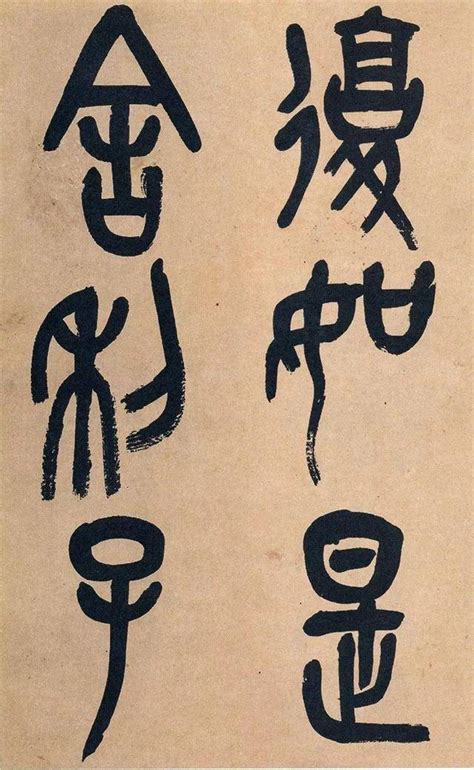 復如是
舍利子